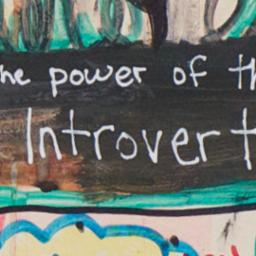 he power of th
Introvert